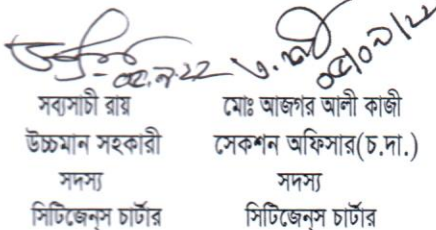 ০৫.৯.২২
সব্যসাচী রায়
উচ্চমান সহকারী
সদস্য
সিটিজেন্স চার্টার
০৫/০৯/২২
মোঃ আজগর আলী কাজী
সেকশন অফিসার(চ.দা.)
সদস্য
সিটিজেন্স চার্টার